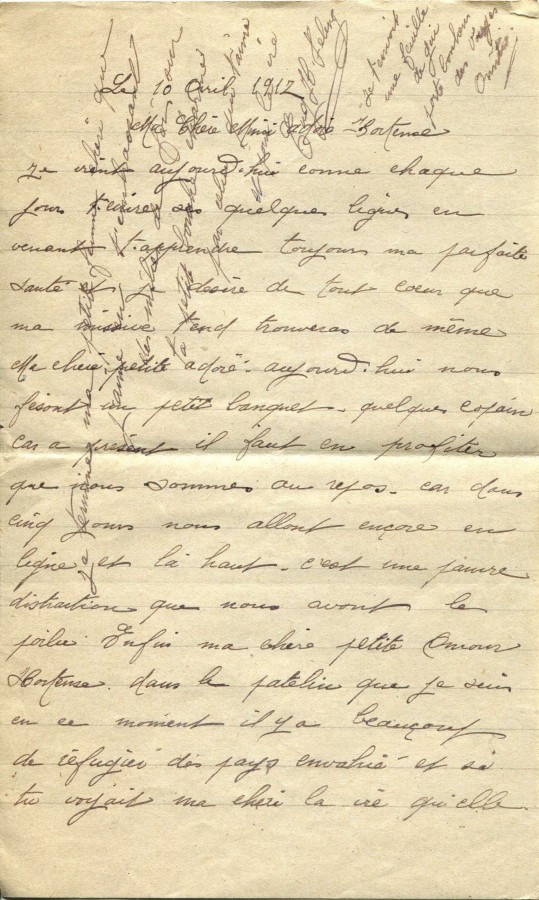 Le 10 Avril 1917
Ma Chère Mimi adoré Hortense
Je vient aujourd'hui comme chaque
jour t'ecrire ses quelques lignes en
venant t'apprendre toujours ma parfaite
santé et je desire de tout coeur que
ma missive t'end trouveras de même
Ma cheri petite adoré. aujourd'hui nous
fesont un petit banquet. quelques copain
car a présent il faut en profiter
que nous sommes au repos. car dans
cinq jours nous allont encore en
ligne. et là haut. c'est une pauvre
distraction que nous avont le
poilu. Enfin ma chère petite Amour
Hortense. dans le patelin que je suis
en ce moment il y a beaucout
de réfugier des pays envahie et si
tu voyait ma cheri la vie qu'elle
Je termine ma petite
des milliers de
ta petite
qui t'aime
Je t'envoit
une feuille
de
porte bonheur
des Vosges